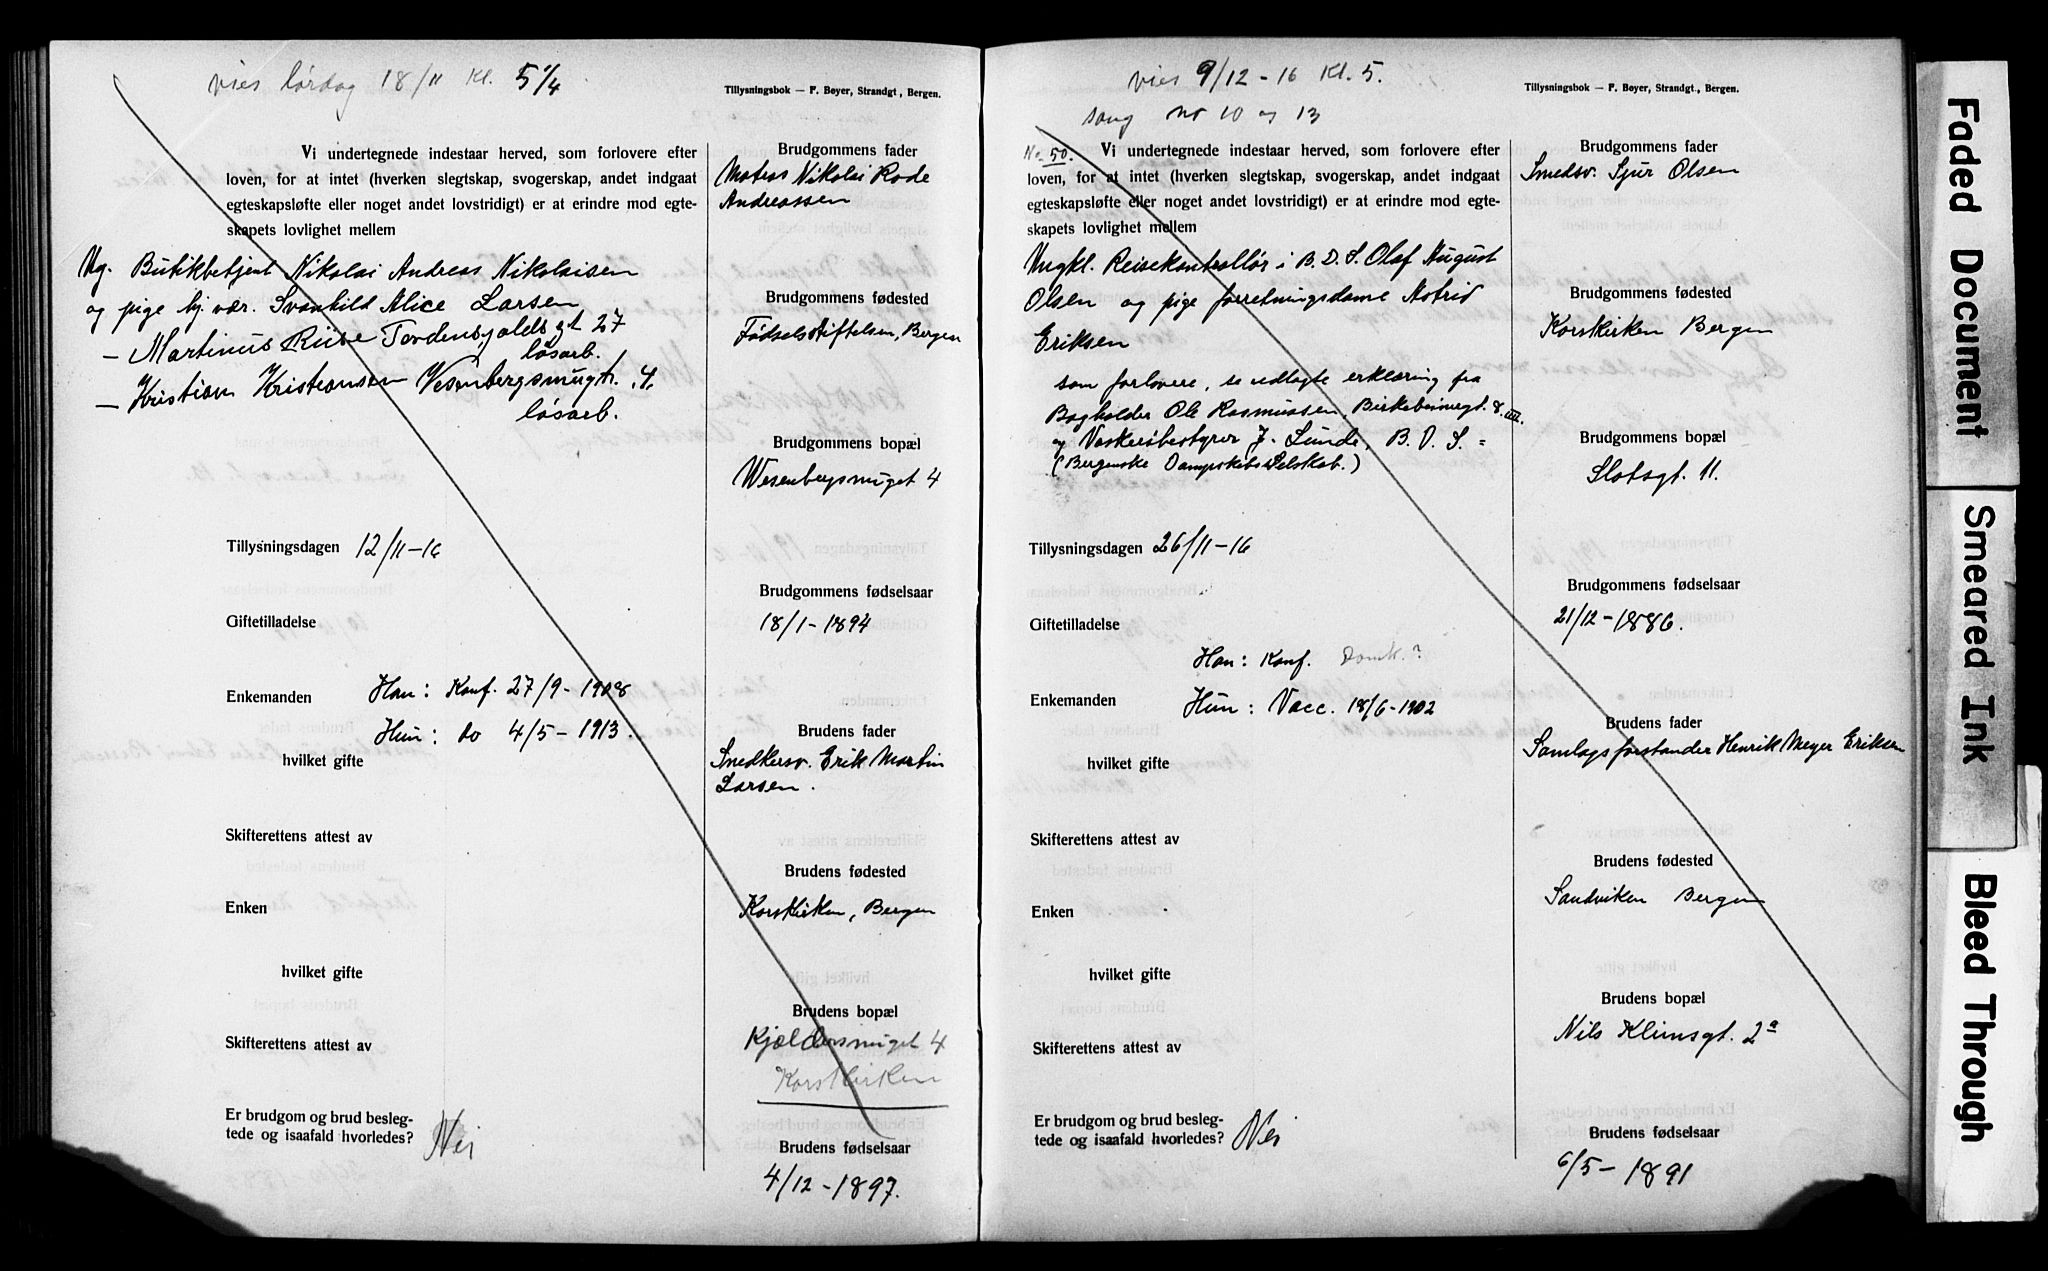 vies lørdag 18/11 Kl. 5 1/4
Tillysningsbok — F. Bøyer, Strandgt., Bergen.
Vi undertegnede indestaar herved, som forlovere efter
loven, for at intet (hverken slegtskap, svogerskap, andet indgaat
egteskapsløfte eller noget andet lovstridigt) er at erindre mod egte-
skapets lovlighet mellem
Ug. Butikbetjent Nikolai Andreas Nikolaisen
og pige hj. vær. Svanhild Alice Larsen
— Martinus Riise Tordensjoldsgt 27
løsarb.
— Kristian Kristiansen Vesenbergsmugt. 4.
løsarb.
Tillysningsdagen 12/11-16
Giftetilladelse
Enkemanden
Han: Konf. 27/9-1908
Hun: do 4/5-1913.
hvilket gifte
Skifterettens attest av
Enken
hvilket gifte
Skifterettens attest av
Er brudgom og brud besleg-
tede og isaafald hvorledes? Nei
Brudgommens fader
Matros Nikolai Rode
Andreassen
Brudgommens fødested
Fødselsstiftelsen, Bergen
Brudgommens bopæl
Wesenbergsmuget 4
Brudgommens fødselsaar
18/1-1894
Brudens fader
Snedkersv. Erik Martin
Larsen.
Brudens fødested
Korskirken, Bergen
Brudens bopæl
Kjældersmuget 4
Korskirken
Brudens fødselsaar
4/12-1897.
vies 9/12-16 Kl. 5.
sang no 10 og 13
Tillysningsbok — F. Bøyer, Strandgt., Bergen.
No. 50. Vi undertegnede indestaar herved, som forlovere efter
loven, for at intet (hverken slegtskap, svogerskap, andet indgaat
egteskapsløfte eller noget andet lovstridigt) er at erindre mod egte-
skapets lovlighet mellem
Ungkl. Reisekontrollør i B.D.S. Olaf August
Olsen og pige forretningsdame Astrid
Eriksen
som forlovere, se vedlagte erklæring fra
Bogholder Ole Rasmussen, Birkebeinergt. 8. III.
og Vaskeribestyrer J. Lunde, B. D. S. =
(Bergenske Dampskibs Selskab.)
Tillysningsdagen 26/11-16
Giftetilladelse
Han: Konf. Domk.?
Enkemanden
Hun: Vacc. 18/6-1902
hvilket gifte
Skifterettens attest av
Enken
hvilket gifte
Skifterettens attest av
Er brudgom og brud besleg-
tede og isaafald hvorledes? Nei
Brudgommens fader
Smedsv. Sjur Olsen
Brudgommens fødested
Korskirken Bergen
Brudgommens bopæl
Slotsgt. 11.
Brudgommens fødselsaar
21/12-1886.
Brudens fader
Samlagsforstander Henrik Meyer Eriksen
Brudens fødested
Sandviken Bergen
Brudens bopæl
Nils Klimsgt. 2a
Brudens fødselsaar
6/5-1891
Faded Document
Smeared Ink
Bleed Through